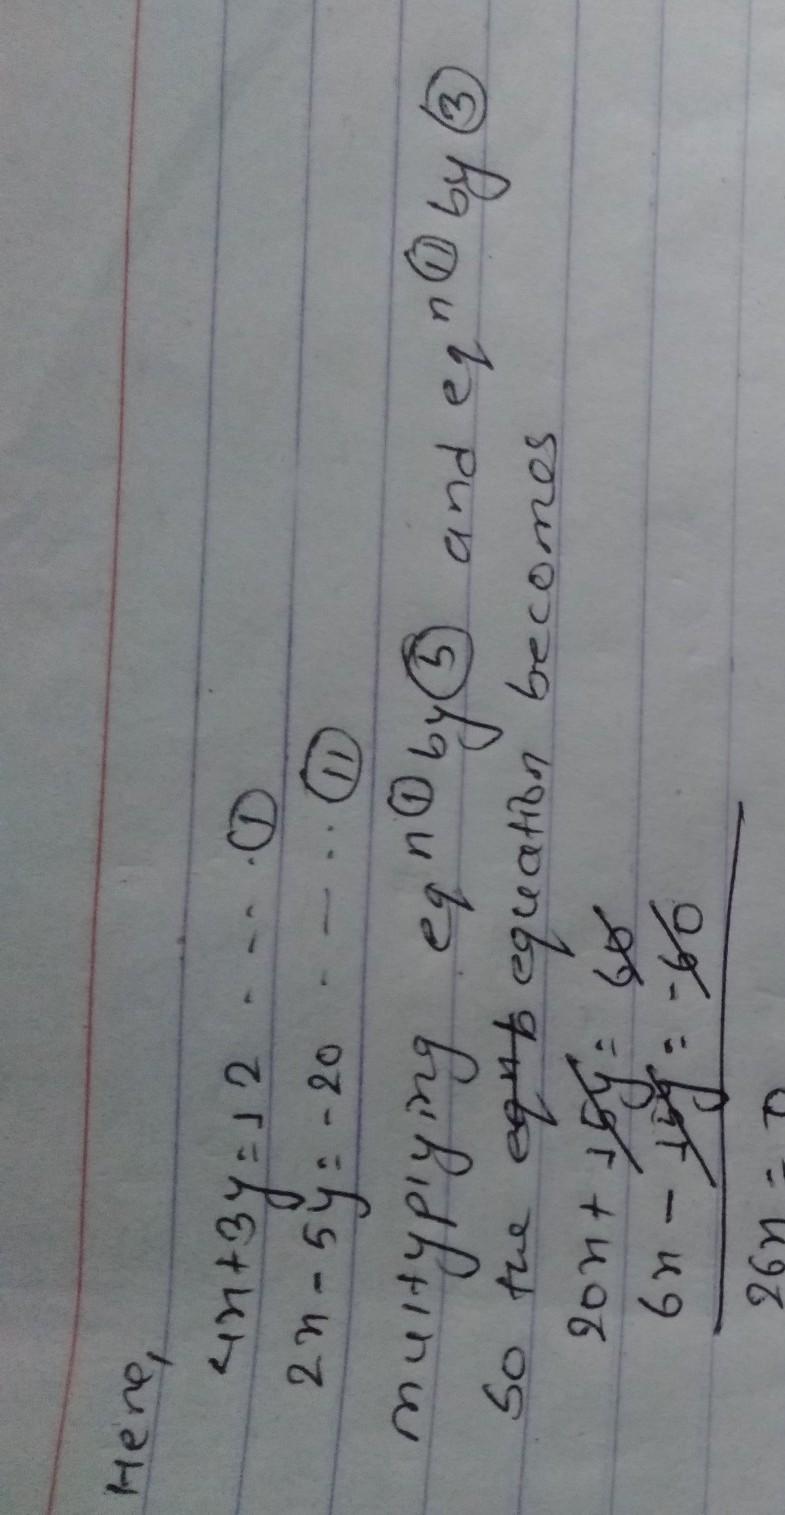 Here,
4x+3y=12 - - - . (I)
2x-5y=-20 - - . . (II)
multyplying eqn (I) by (5) and eqn (II) by (3)
So the equation becomes
20x+15y=60
6x-15y=-60
26x=0